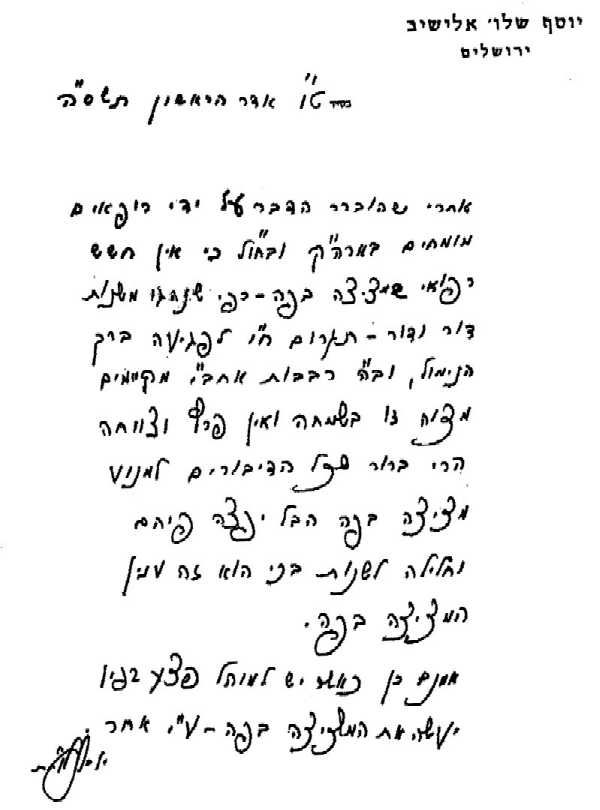 יוסף שלו׳ אלישיב
ירושלים
בס״ד ט״ו אדר הראשון תשס״ה
אחרי שהוברר הדבר על ידי רופאים
מומחים בארה״ק ובחו״ל כי אין חשש
רפואי שמציצה בפה - כפי שנהגו משנות
דור ודור - תגרום ח״ו לפגיעה ברך
הנימול, וב״ה רבבות אחב״י מקיימים
מצוה זו בשמחה ואין פרץ וצווחה
הרי ברור שכל הדיבורים למנוע
מציצה בפה הבל יפצה פיהם
וחלילה לשנות בכי הוא זה ענין
המציצה בפה.
אמנם כן כאשר יש למוהל פצע בפיו
יעשה את המציצה בפה - ע״י אחר.